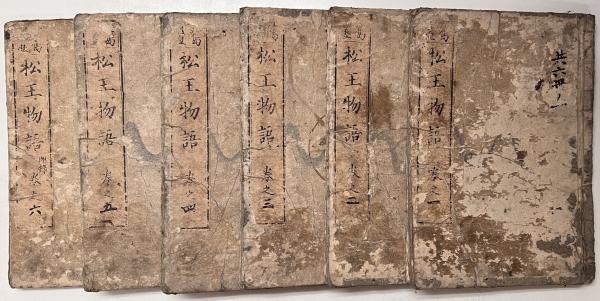 共六冊ノ一
松王物語 巻之一
松王物語 巻之二
松王物語 巻之三
松王物語 巻之四
松王物語 巻之五
松王物語 巻之六